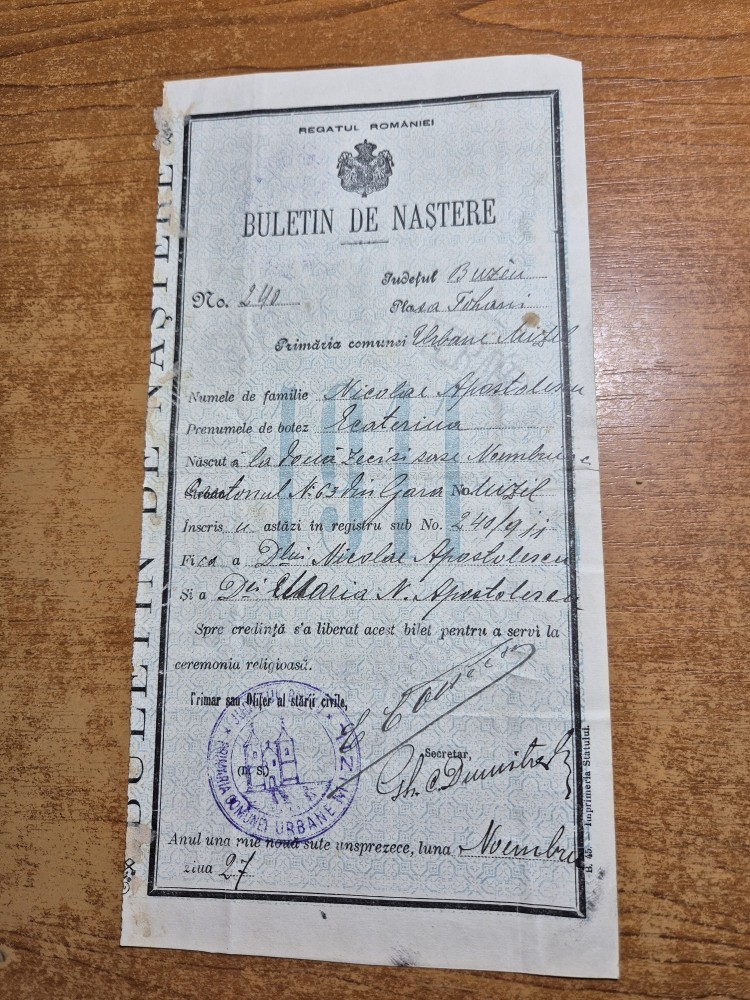 BULETIN DE NAȘTERE
REGATUL ROMÂNIEI
BULETIN DE NAȘTERE
Județul Buzĕu
No. 240
Plasa Tohani
Primăria comunei Urbane Mizil
1911
Numele de familie Nicolae Apostolescu
Prenumele de botez Ecaterina
Născut ă la două zeci si sase Noembrie
Cantonul No 63 din Gara Mizil
Inscris astăzi în registru sub No. 240/911
Fica a Dlui Nicolae Apostolescu
Și a Dei Maria N. Apostolescu
Spre credință s'a liberat acest bilet pentru a servi la
ceremonia religioasă.
Primar sau Ofițer al stării civile,
(m. s.)
PRIMĂRIA COMUNEI URBANE MIZIL
Secretar,
Gh. C. Dumitres
Anul una mie nouă sute unsprezece, luna Noembrie
ziua 27
B. 45. — Imprimeria Statului.